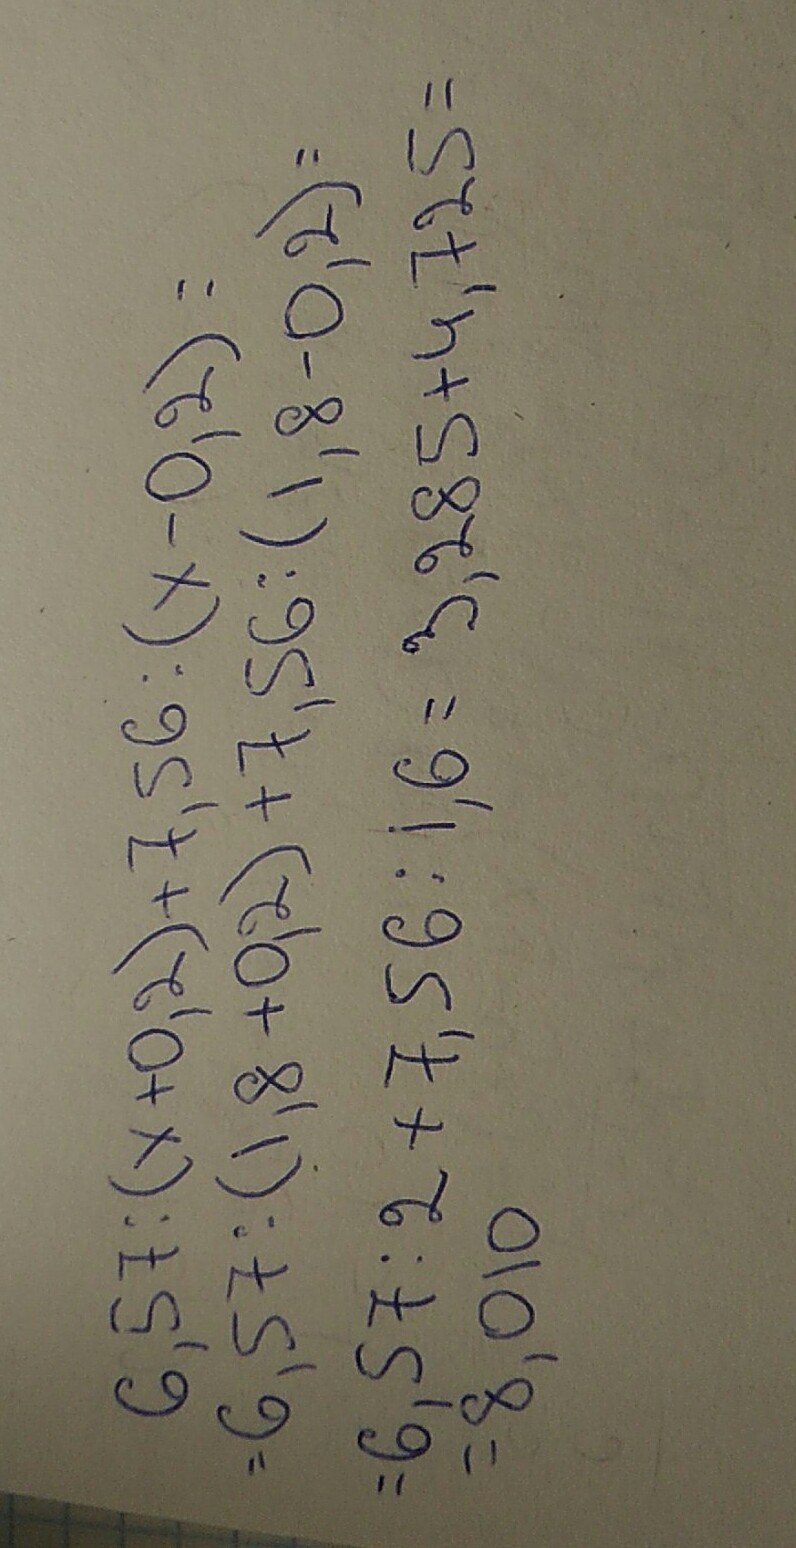 6,57:(x+0,2)+7,56:(x-0,2)=
=6,57:(1,8+0,2)+7,56:(1,8-0,2)=
=6,57:2+7,56:1,6=3,285+4,725=
=8,010